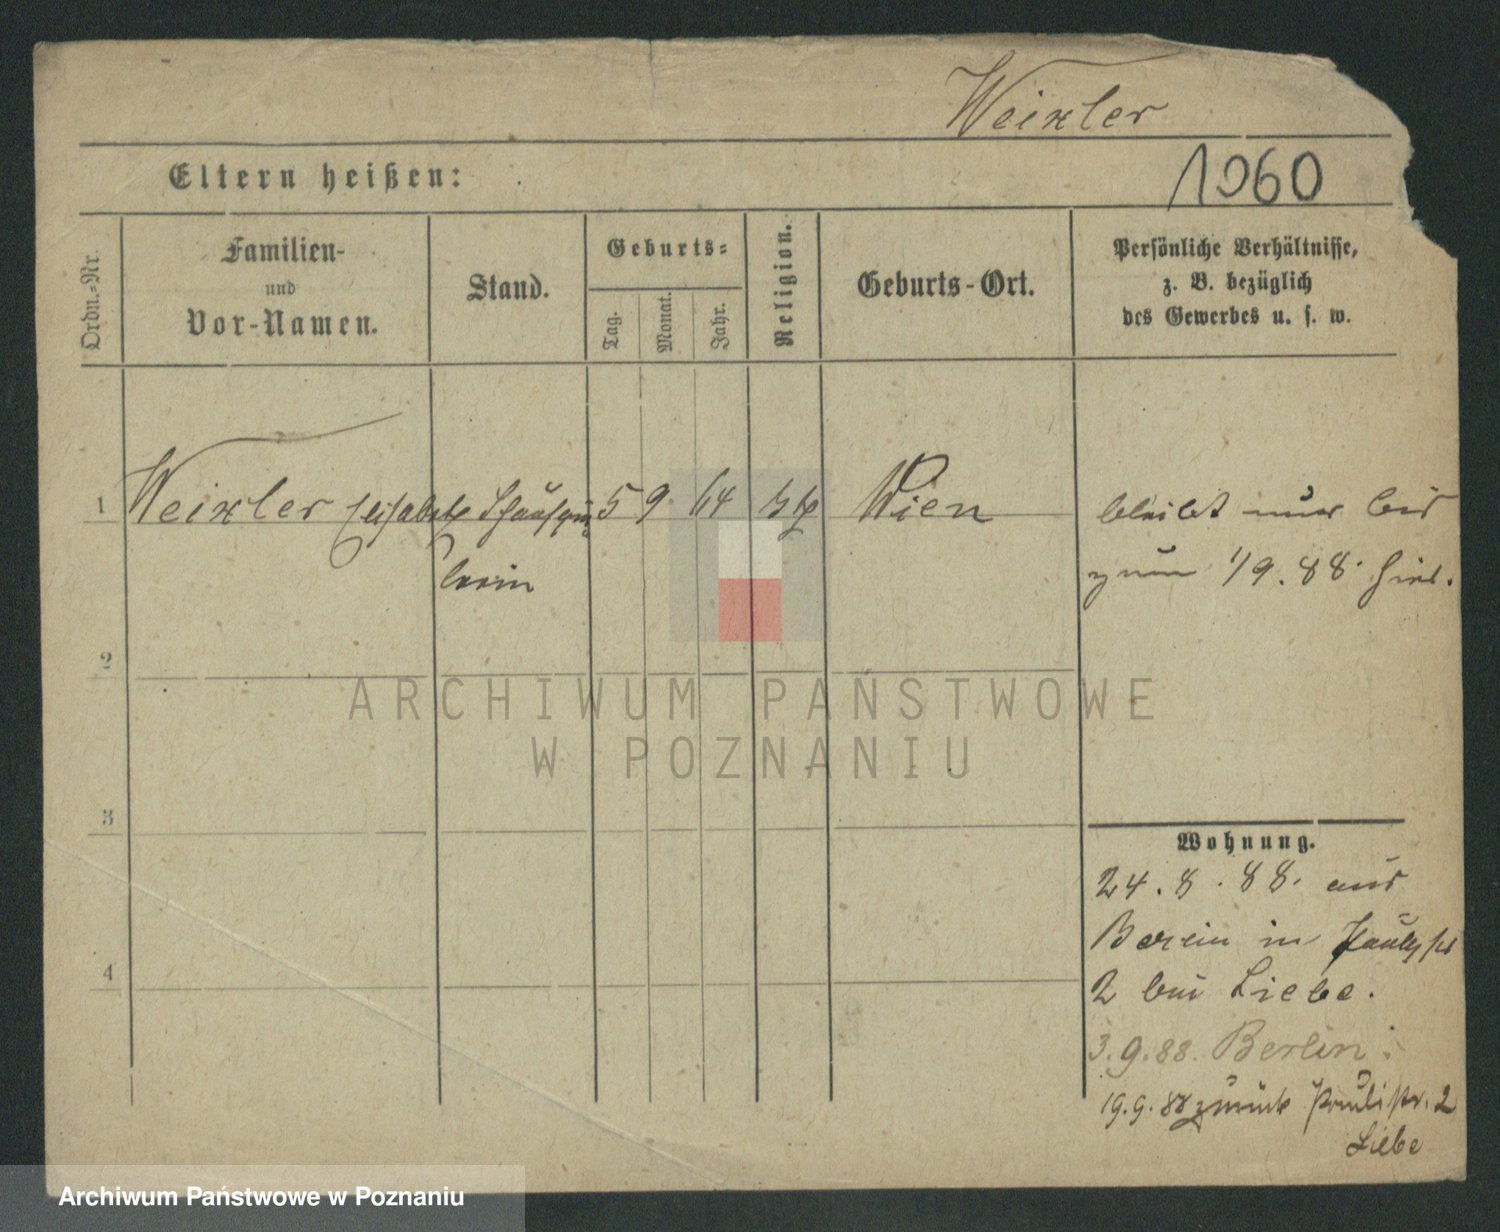 Weixler
1060
Eltern heißen:
Ordn.-Nr.
Familien-
und
Vor-Namen.
Stand.
Geburts-
Tag.
Monat.
Jahr.
Religion.
Geburts-Ort.
Persönliche Verhältnisse,
z. B. bezüglich
des Gewerbes u. s. w.
1 Weixler Elisabeth Schauspie- 5 9 64 Wien
lerin
bleibt nur bis
zum 1/9.88. hier.
2
3
4
ARCHIWUM PAŃSTWOWE
W POZNANIU
Wohnung.
24.8.88. aus
in
2 bei Liebe.
3.9.88. Berlin.
19.9.88 zurück Paulistr. 2
Liebe
Archiwum Państwowe w Poznaniu